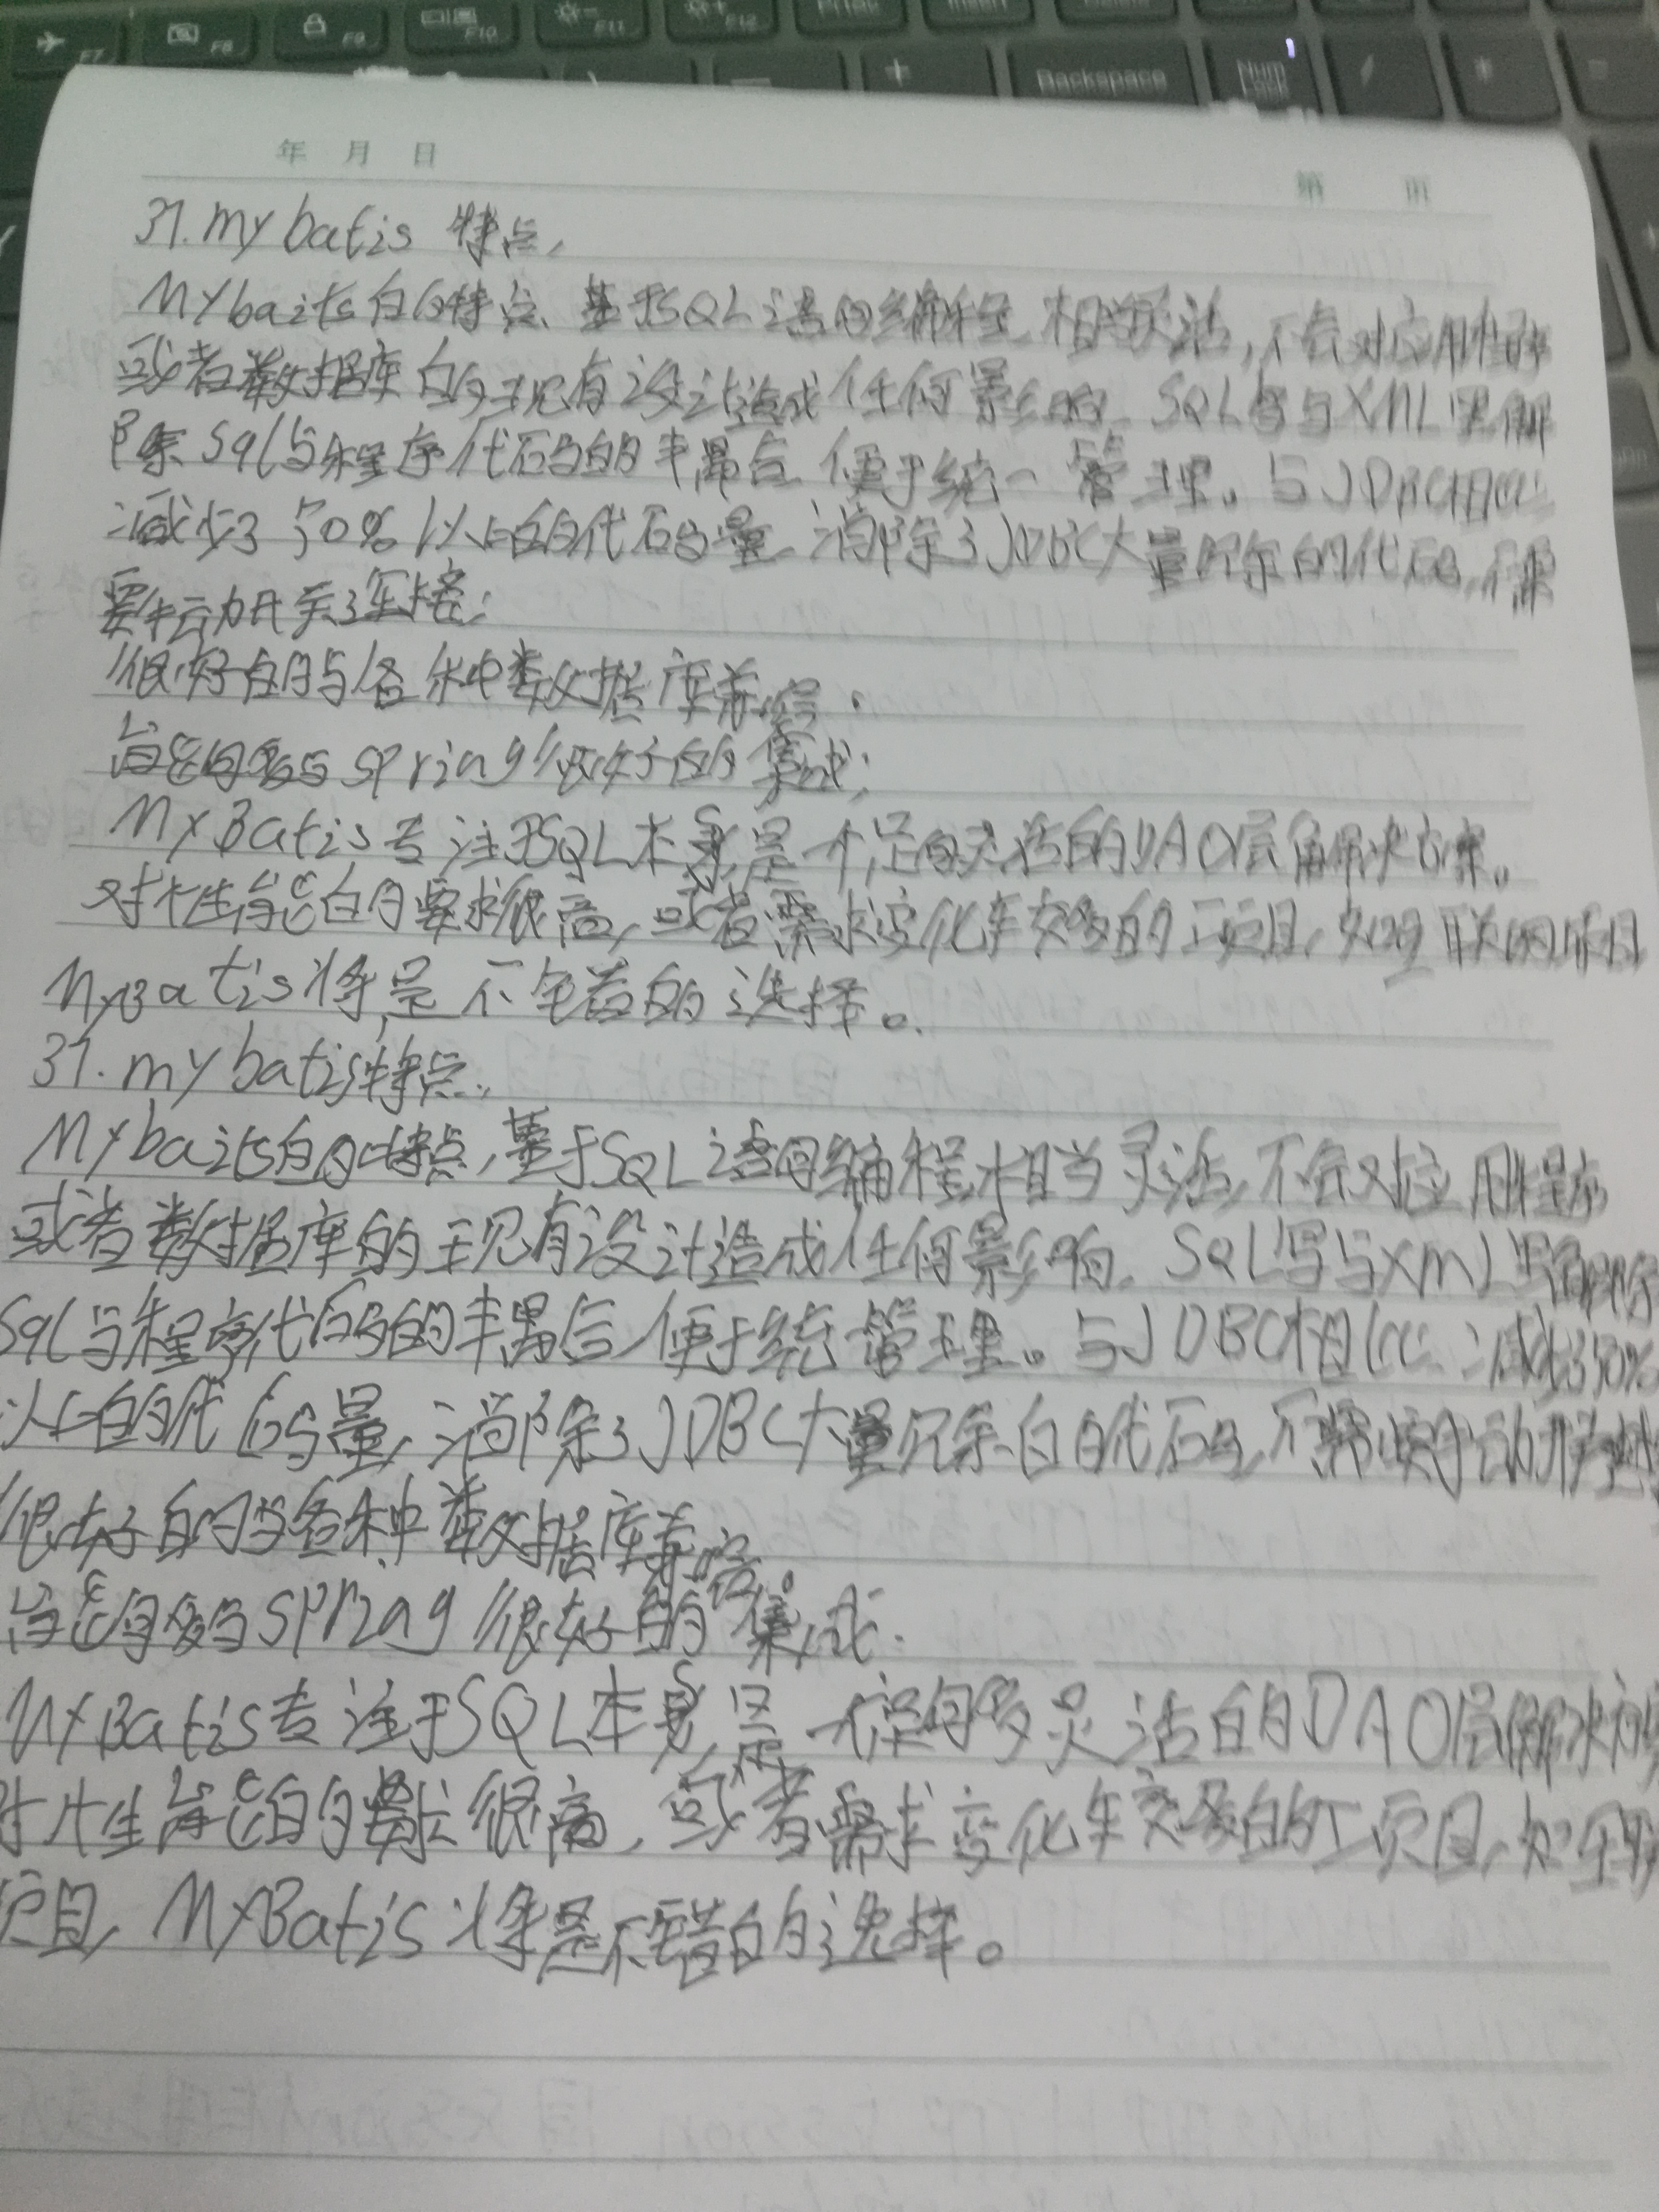 F7 F8 F9 F10 F11 F12 Insert
Backspace Num Lock
年 月 日
第 页
31. my batis 特点,
Mybaits的特点、基于SQL语句编程,相当灵活,不会对应用程序
或者数据库的现有设计造成任何影响 SQL写与XML里解
除 sql与程序代码的丰耦合 便于统一管理。与JDBC相比
减少了50%以上的代码量,消除了JDBC大量冗余的代码,不需
要手动开关了连接;
很好的与各种数据库兼容;
能够与Spring很好的集成;
MyBatis专注于SQL本身,是一个足够灵活的DAO层解决方案。
对性能的要求很高,或者需求变化车交多的工页目,如互联网项目
MyBatis将是不错的选择。
31. my batis特点,
Mybaits的特点,基于SQL语句编程相当灵活,不会对应用程序
或者数据库的现有设计造成任何影响. SQL写与xml里解除
Sql与程序代码的丰耦合,便于统一管理。与JDBC相比 减少了50%
以上的代码量,消除了JDBC大量冗余的代码,不需要手动开关
很好的与各种数据库兼容;
能够与spring很好的集成;
MyBatis专注于SQL本身,是一个足够多灵活的DAO层解决方
对性能的要求很高,或者需求变化车交多的工页目,如互联
页目,MyBatis将是不错的选择。